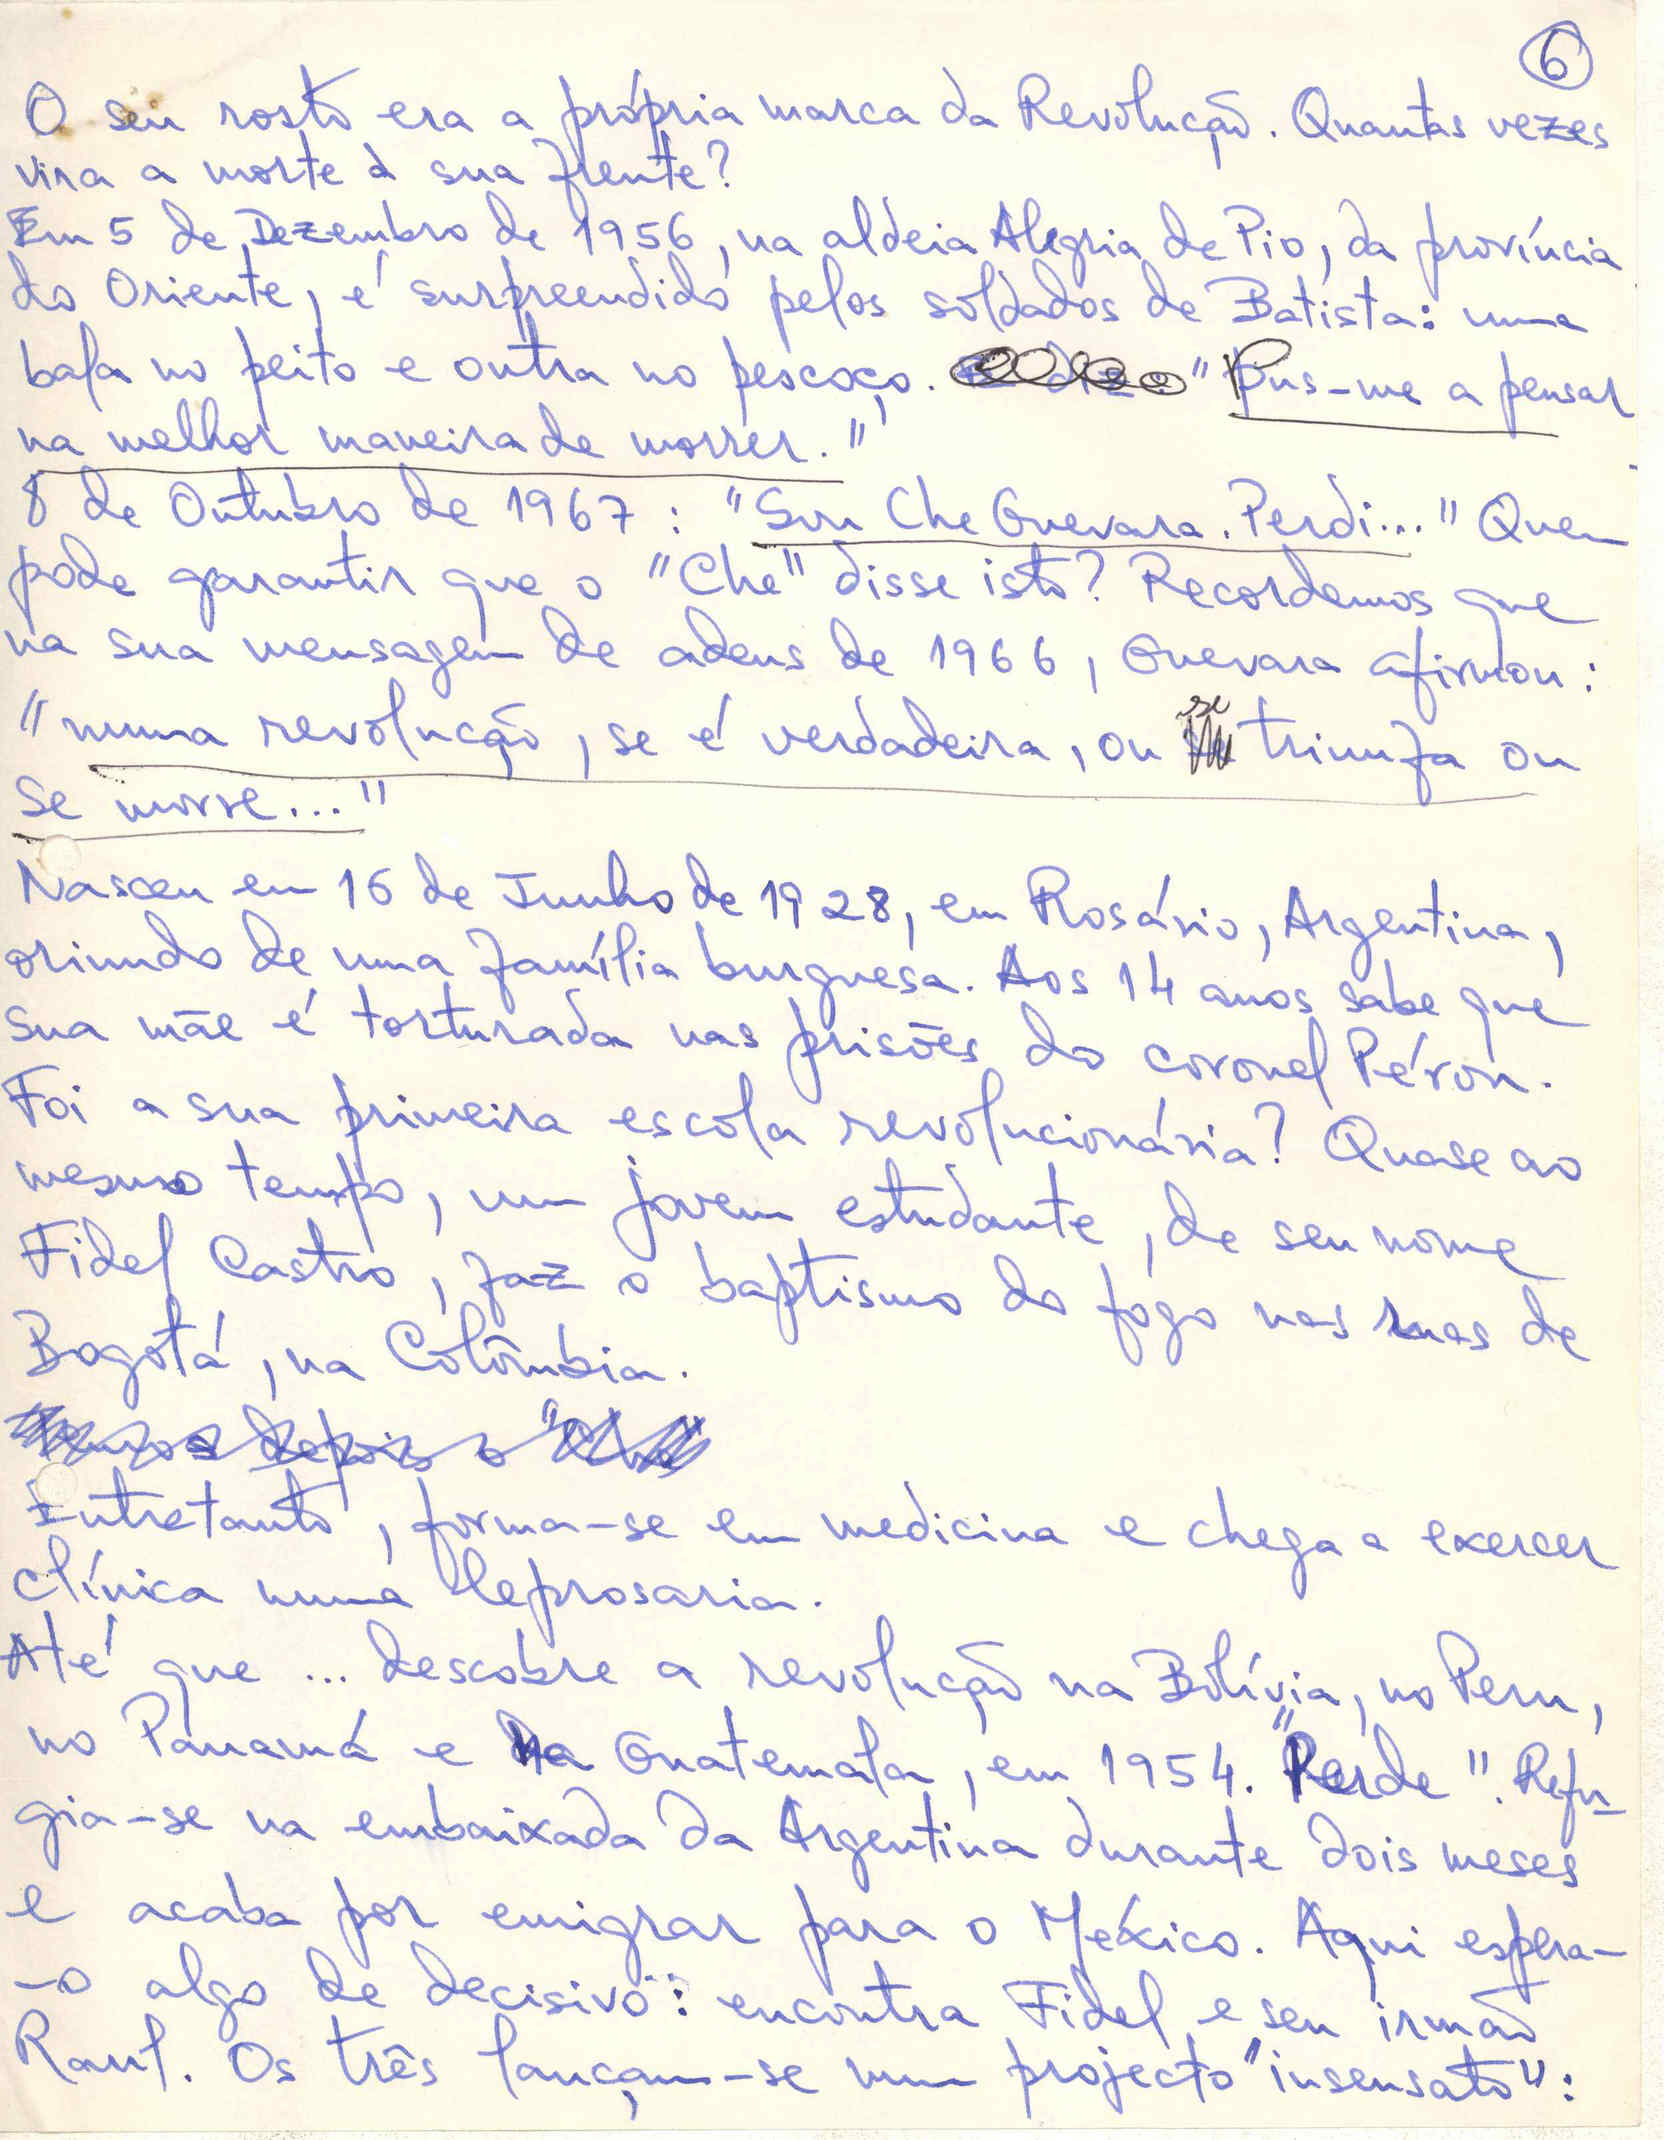 6
O seu rosto era a própria marca da Revolução. Quantas vezes
vira a morte à sua frente?
Em 5 de Dezembro de 1956, na aldeia Alegria de Pio, da província
do Oriente, é surpreendido pelos soldados de Batista: uma
bala no peito e outra no pescoço. "Pus-me a pensar
na melhor maneira de morrer."
8 de Outubro de 1967: "Sou Che Guevara. Perdi..." Quem
pode garantir que o "Che" disse isto? Recordemos que
na sua mensagem de adeus de 1966, Guevara afirmou:
"numa revolução, se é verdadeira, ou se triunfa ou
se morre..."
Nasceu em 16 de Junho de 1928, em Rosário, Argentina,
oriundo de uma família burguesa. Aos 14 anos sabe que
sua mãe é torturada nas prisões do coronel Péron.
Foi a sua primeira escola revolucionária? Quase ao
mesmo tempo, um jovem estudante, de seu nome
Fidel Castro, faz o baptismo do fogo nas ruas de
Bogotá, na Colômbia.
depois o "Che"
Entretanto, forma-se em medicina e chega a exercer
clínica numa leprosaria.
Até que ... descobre a revolução na Bolívia, no Peru,
no Panamá e na Guatemala, em 1954. "Perde". Refu-
gia-se na embaixada da Argentina durante dois meses
e acaba por emigrar para o México. Aqui espera-
-o algo de decisivo: encontra Fidel e seu irmão
Raul. Os três lançam-se num projecto "insensato":